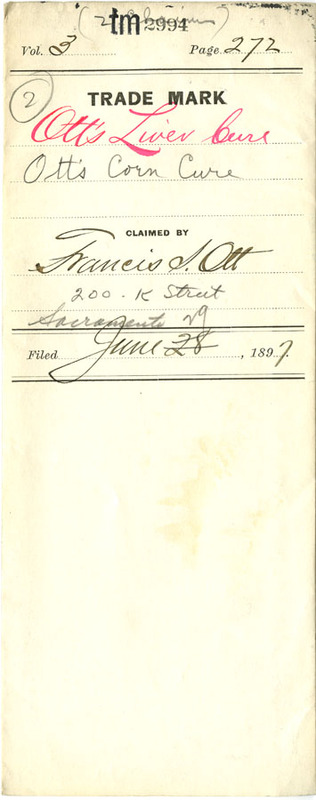 (2 Claims)
tm 2994
Vol. 3 Page 272
2
TRADE MARK
Ott's Liver Cure
Ott's Corn Cure
CLAIMED BY
Francis S. Ott
200 - K Street
Sacramento
29
Filed June 28, 1897.